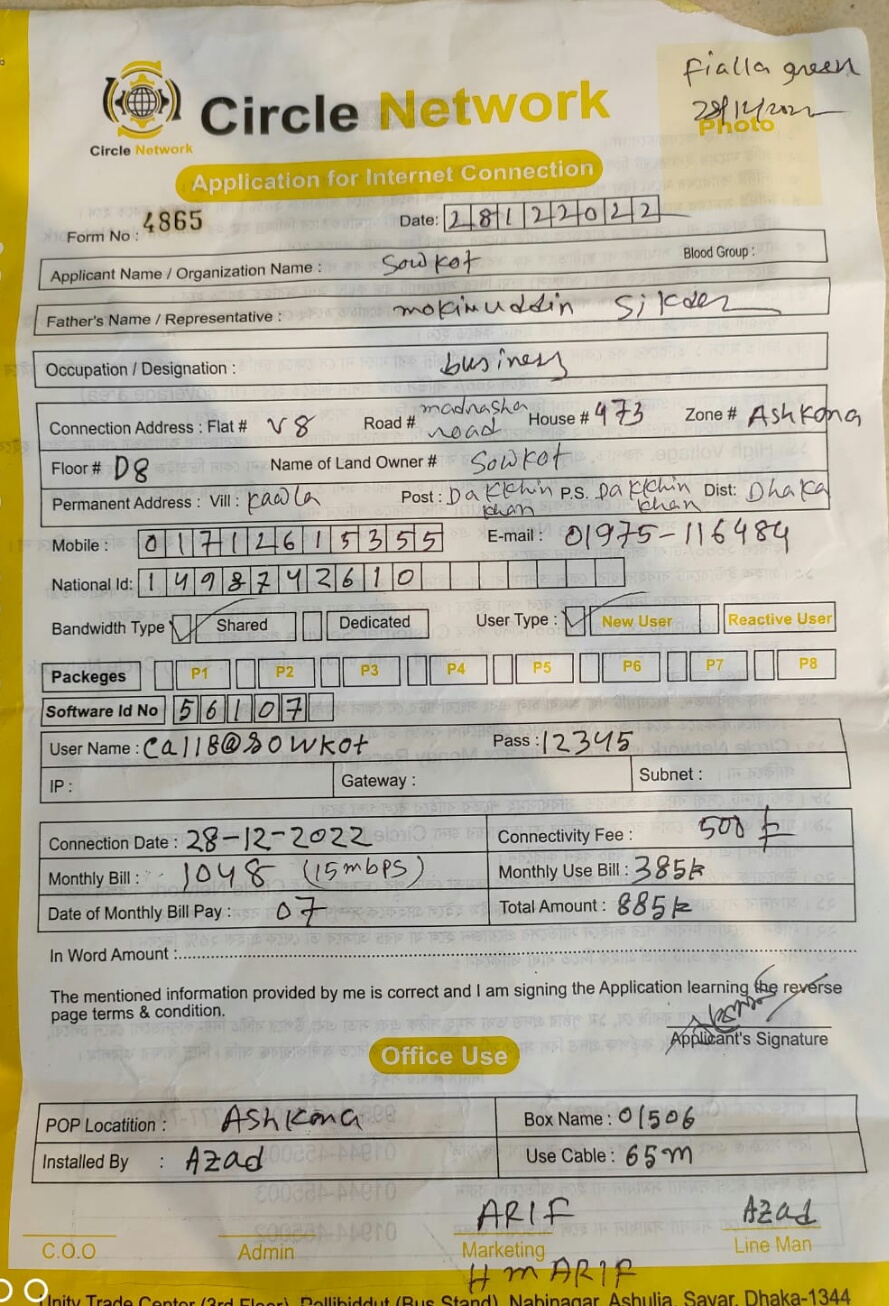 fialla green
28/12/2022
Photo
Circle Network
Circle Network
Application for Internet Connection
Form No : 4865
Date: 28122022
Applicant Name / Organization Name : Sowkot Blood Group :
Father's Name / Representative : mokimuddin Sikder
Occupation / Designation : business
Connection Address : Flat # V8 Road # madrasha road House # 473 Zone # Ashkona
Floor # D8 Name of Land Owner # Sowkot
Permanent Address : Vill : kawla Post : Dakkhin khan P.S. Dakkhin khan Dist: Dhaka
Mobile : 01712615355 E-mail : 01975-116484
National Id: 1498742610
Bandwidth Type Shared Dedicated User Type : New User Reactive User
Packeges P1 P2 P3 P4 P5 P6 P7 P8
Software Id No 56107
User Name : Ca118@sowkot Pass : 12345
IP : Gateway : Subnet :
Connection Date : 28-12-2022 Connectivity Fee : 500 ৳
Monthly Bill : 1048 (15mbps) Monthly Use Bill : 385৳
Date of Monthly Bill Pay : 07 Total Amount : 885৳
In Word Amount :
The mentioned information provided by me is correct and I am signing the Application learning the reverse
page terms & condition.
Applicant's Signature
Office Use
POP Locatition : Ashkona Box Name : 01506
Installed By : Azad Use Cable : 65m
ARIF Azad
C.O.O Admin Marketing Line Man
H m ARIF
Unity Trade Center (3rd Floor), Pollibiddut (Bus Stand), Nabinagar, Ashulia, Savar, Dhaka-1344